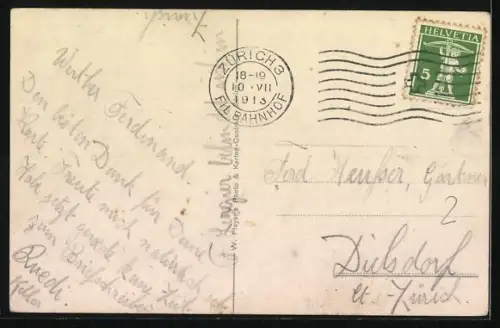 Werther Ferdinand.
Den besten Dank für Deine
Karte. Freute mich natürlich sehr.
Habe jetzt gerade keine Zeit
zum Briefschreiben
Ruedi
Keller
ZÜRICH 3
18-19
10.VII
1913
FIL. BAHNHOF
HELVETIA
5
Ferd Heußer, Gärtner
2
Dielsdorf
Kt. Zürich